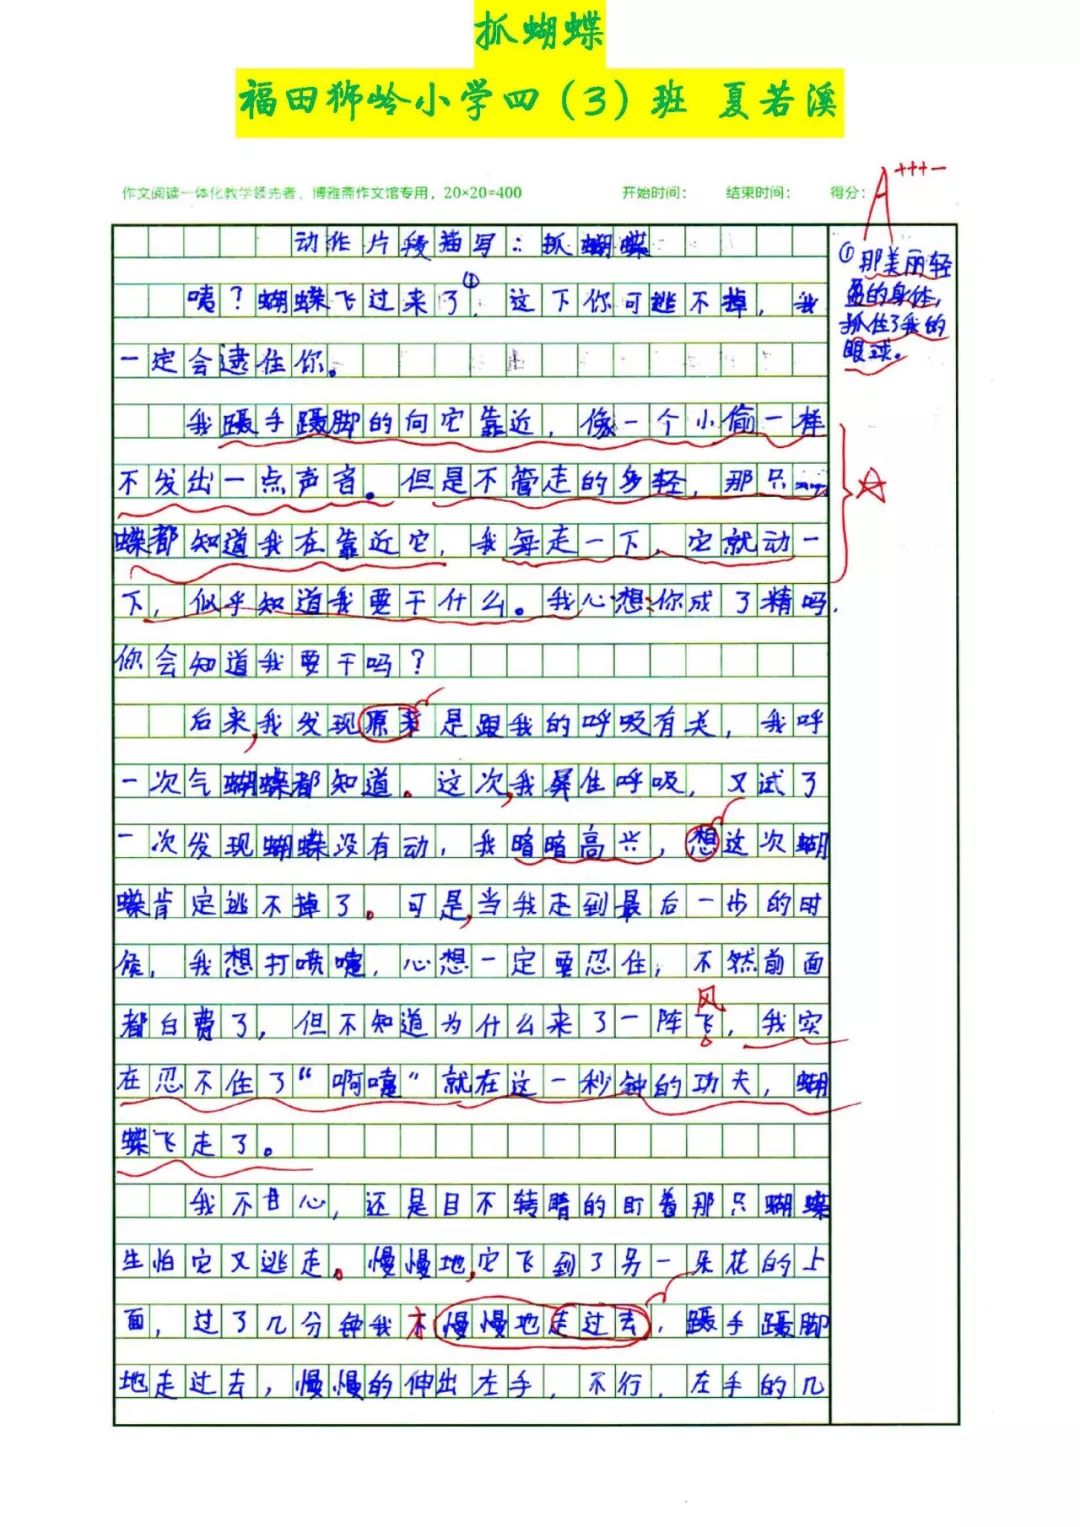 抓蝴蝶
福田狮岭小学四（3）班 夏若溪
作文阅读一体化教学领先者，博雅斋作文馆专用，20×20=400 开始时间： 结束时间： 得分：
A+++-
动作片段描写：抓蝴蝶
咦？蝴蝶飞过来了①，这下你可逃不掉，我
一定会逮住你。
①那美丽轻
盈的身体，
抓住了我的
眼球。
我蹑手蹑脚的向它靠近，像一个小偷一样
不发出一点声音。但是不管走的多轻，那只
蝶都知道我在靠近它，我每走一下，它就动一
下，似乎知道我要干什么。我心想：你成了精吗，
你会知道我要干吗？
后来，我发现原来是跟我的呼吸有关，我呼
一次气蝴蝶都知道。这次，我屏住呼吸，又试了
一次发现蝴蝶没有动，我暗暗高兴，想这次蝴
蝶肯定逃不掉了。可是，当我走到最后一步的时
候，我想打喷嚏，心想一定要忍住，不然前面
风
都白费了，但不知道为什么来了一阵飞，我实
在忍不住了“啊嚏”就在这一秒钟的功夫，蝴
蝶飞走了。
我不甘心，还是目不转睛的盯着那只蝴蝶
生怕它又逃走。慢慢地，它飞到了另一朵花的上
面，过了几分钟我才慢慢地走过去，蹑手蹑脚
地走过去，慢慢的伸出左手，不行，左手的几